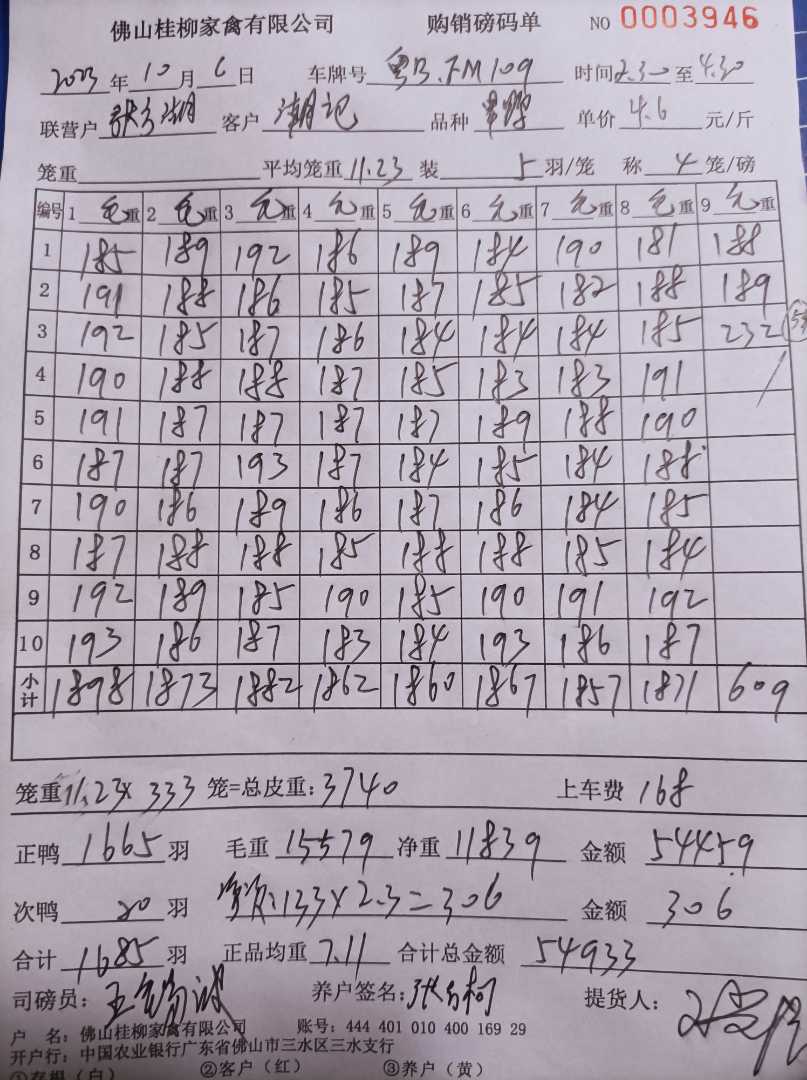 佛山桂柳家禽有限公司 购销磅码单 NO 0003946
2023年10月6日 车牌号 粤B.FM109 时间2.30至4.30
联营户 客户 潮记 品种 单价 4.6 元/斤
笼重 平均笼重 11.23 装 5 羽/笼 称 4 笼/磅
编号 1 毛重 2 毛重 3 毛重 4 毛重 5 毛重 6 毛重 7 毛重 8 毛重 9 毛重
1 185 189 192 186 189 184 190 181 188
2 191 188 186 185 187 185 182 188 189
3 192 185 187 186 184 184 184 185 232
4 190 188 188 187 185 183 183 191
5 191 187 187 187 187 189 188 190
6 187 187 193 187 184 185 184 188
7 190 186 189 186 187 186 184 185
8 187 188 188 185 188 188 185 184
9 192 189 185 190 185 190 191 192
10 193 186 187 183 184 193 186 187
小计 1898 1873 1882 1862 1860 1867 1857 1871 609
笼重11.23X 333 笼=总皮重:3740 上车费 168
正鸭 1665 羽 毛重 15579 净重 11839 金额 54459
次鸭 20 羽 133X2.3=306 金额 306
合计 1685 羽 正品均重 7.11 合计总金额 54933
司磅员: 养户签名: 提货人:
户 名:佛山桂柳家禽有限公司 账号:444 401 010 400 169 29
开户行:中国农业银行广东省佛山市三水区三水支行
①存根(白) ②客户(红) ③养户(黄)